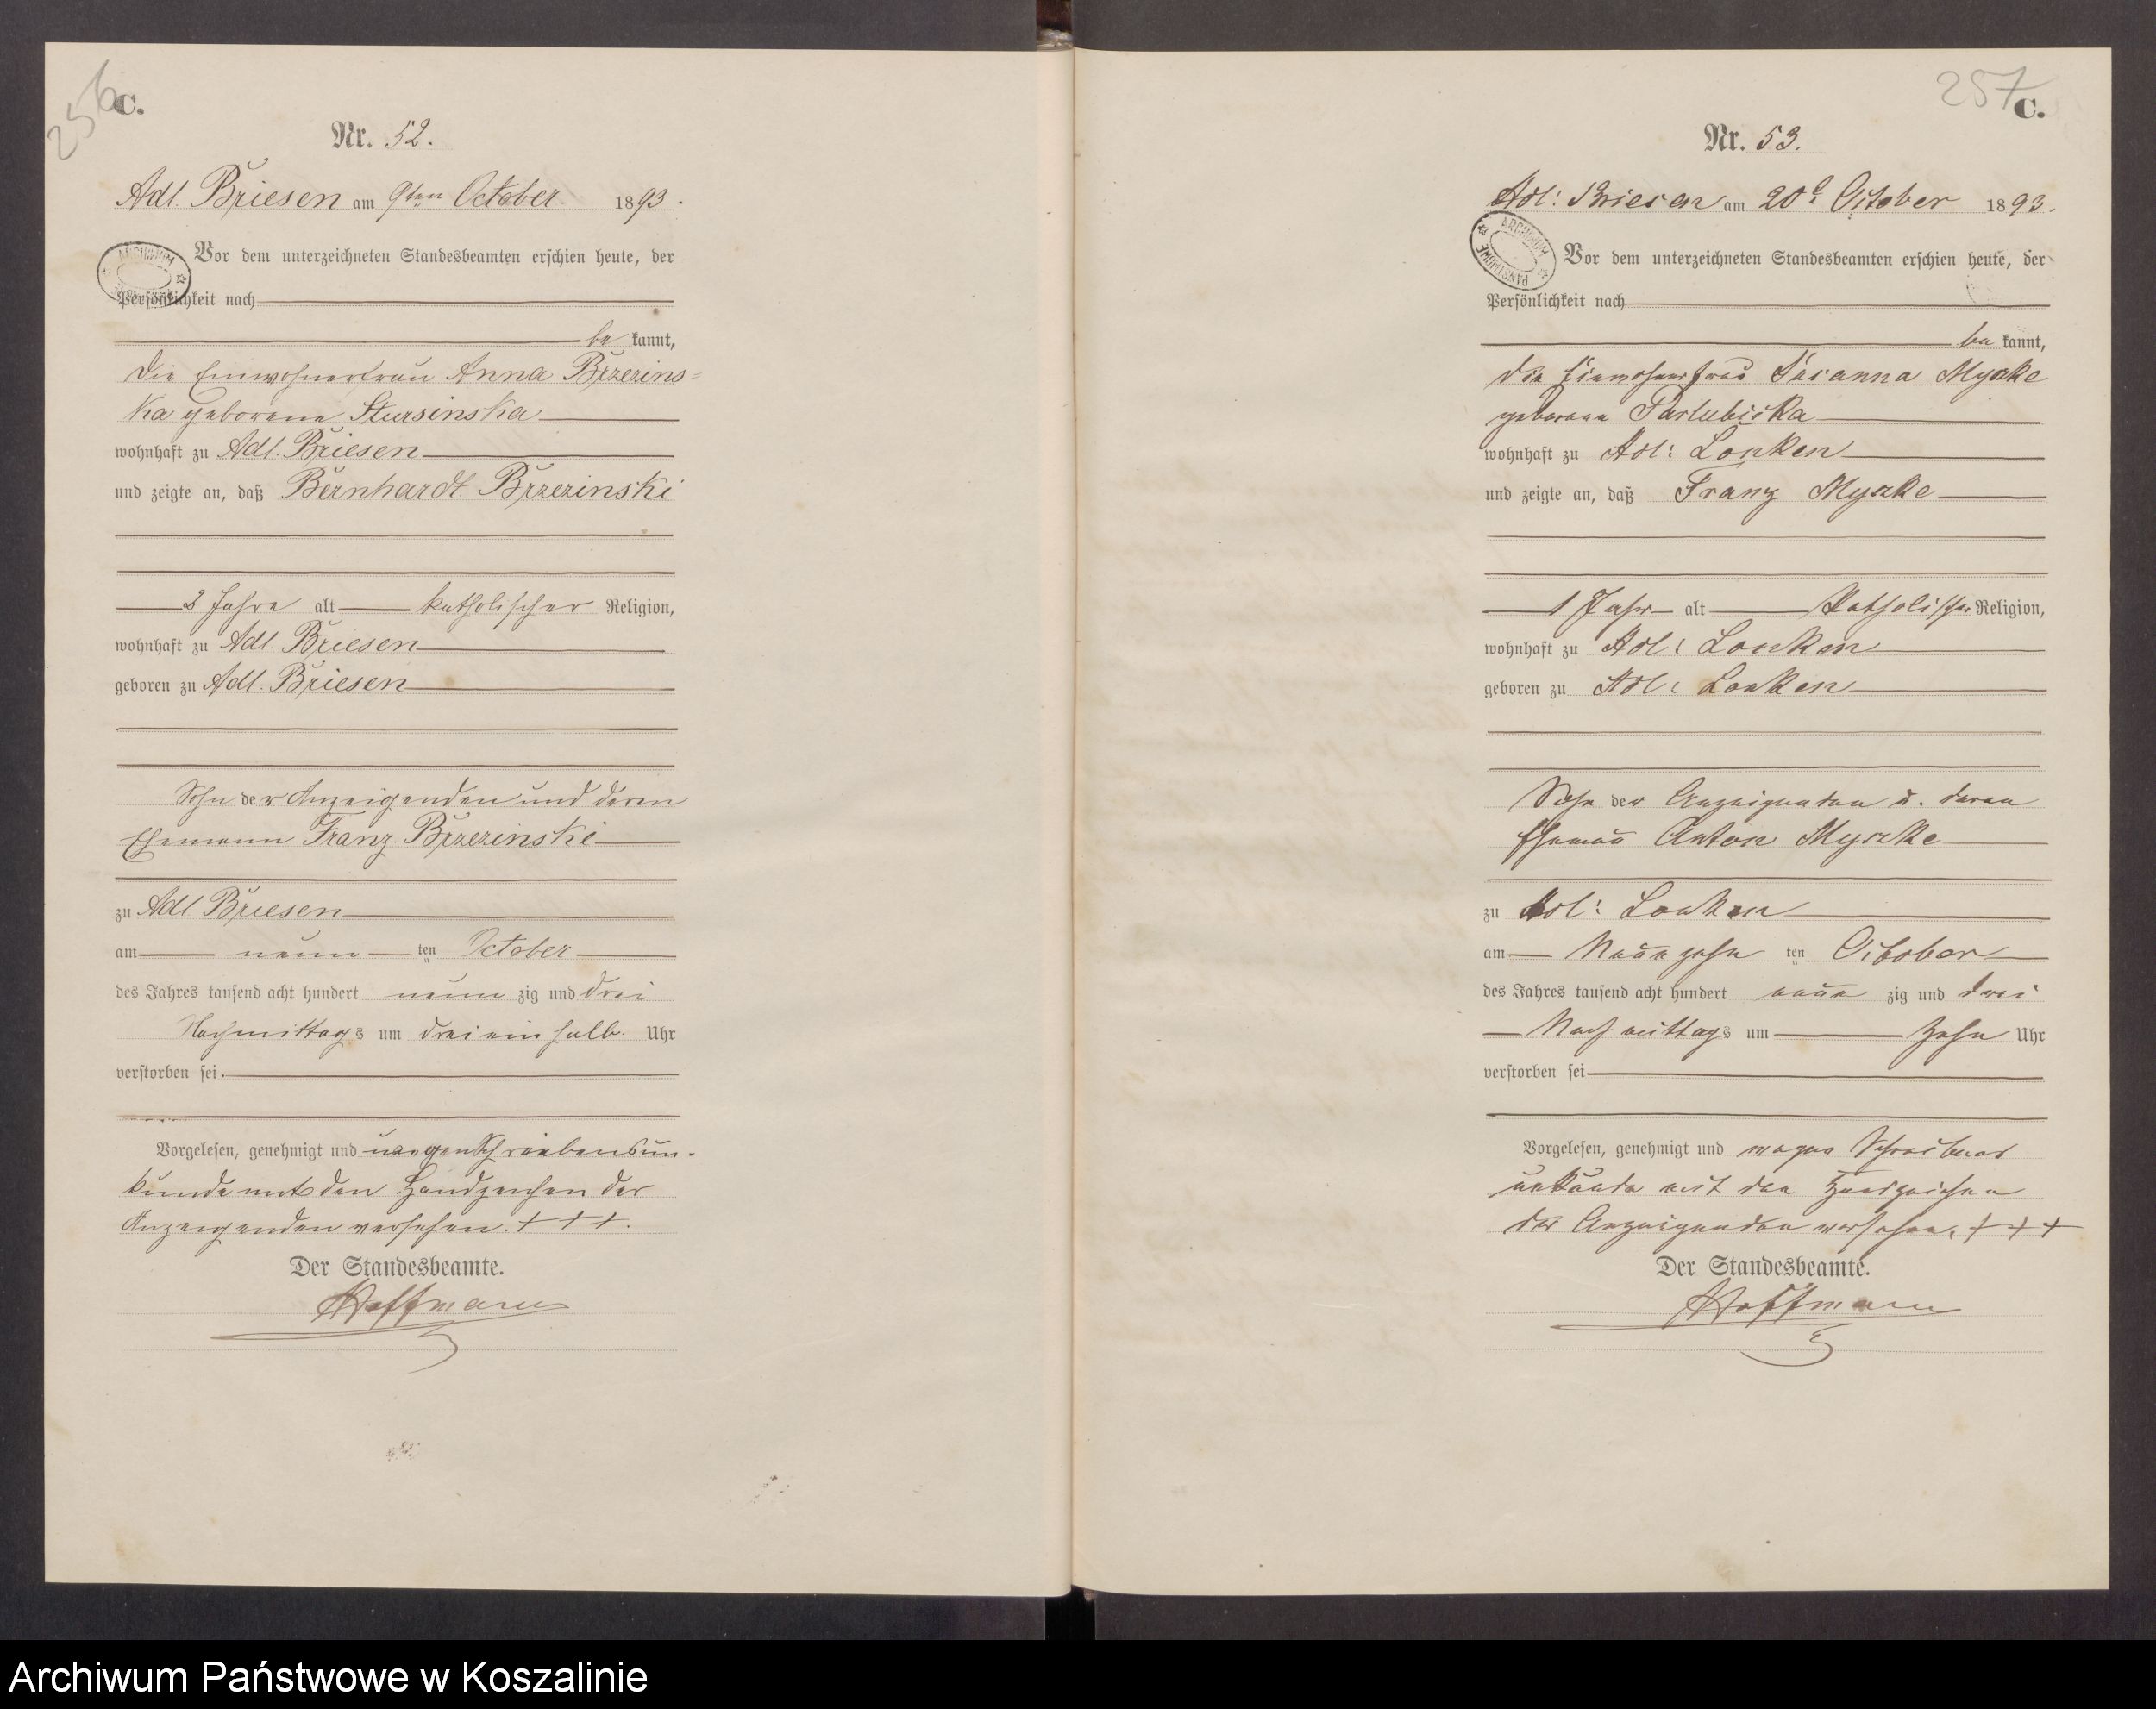 256
C.
Nr. 52.
Adl. Briesen am 9ten October 1893.
Vor dem unterzeichneten Standesbeamten erschien heute, der
Persönlichkeit nach
be kannt,
die Einwohnerfrau Anna Brzezins=
ka geborene Stursinska
wohnhaft zu Adl. Briesen
und zeigte an, daß Bernhardt Brzezinski
Jahre alt katholischer Religion,
wohnhaft zu Adl. Briesen
geboren zu Adl. Briesen
Sohn der Anzeigenden und deren
Ehemann Franz Brzezinski
zu Adl. Briesen
am neun ten October
des Jahres tausend acht hundert neun zig und drei
Nachmittags um drei ein halb Uhr
verstorben sei.
Vorgelesen, genehmigt und wegen Schreibensun-
kunde mit den Handzeichen der
Anzeigenden versehen. + + +.
Der Standesbeamte.
Hoffmann
257
C.
Nr. 53.
Adl: Briesen am 20t October 1893.
ARCHIWUM PAŃSTWOWE
Vor dem unterzeichneten Standesbeamten erschien heute, der
Persönlichkeit nach
be kannt,
die Einwohnerfrau Susanna Myszke
geborene
wohnhaft zu Adl: Lonken
und zeigte an, daß Franz Myszke
1 Jahr alt katholischer Religion,
wohnhaft zu Adl: Lonken
geboren zu Adl: Lonken
Sohn der Anzeigenden u. deren
Ehemann Anton Myszke
zu Adl: Lonken
am Neunzehn ten October
des Jahres tausend acht hundert neun zig und drei
Nachmittags um zehn Uhr
verstorben sei
Vorgelesen, genehmigt und wegen Schreibens
unkunde mit den Handzeichen
der Anzeigenden versehen. + + +
Der Standesbeamte.
Hoffmann
Archiwum Państwowe w Koszalinie